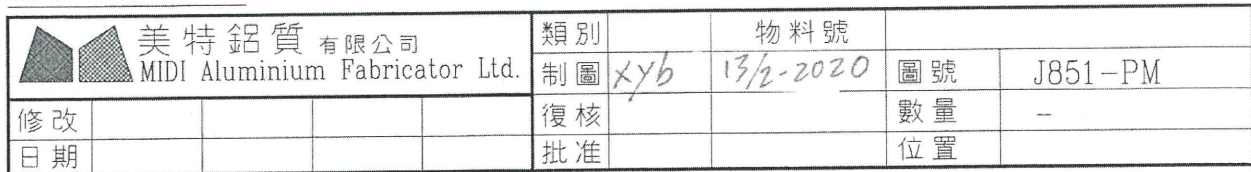 美特鋁質 有限公司
MIDI Aluminium Fabricator Ltd.
類別 物料號
制圖 xyb 13/2-2020 圖號 J851-PM
修改 復核 數量 -
日期 批准 位置